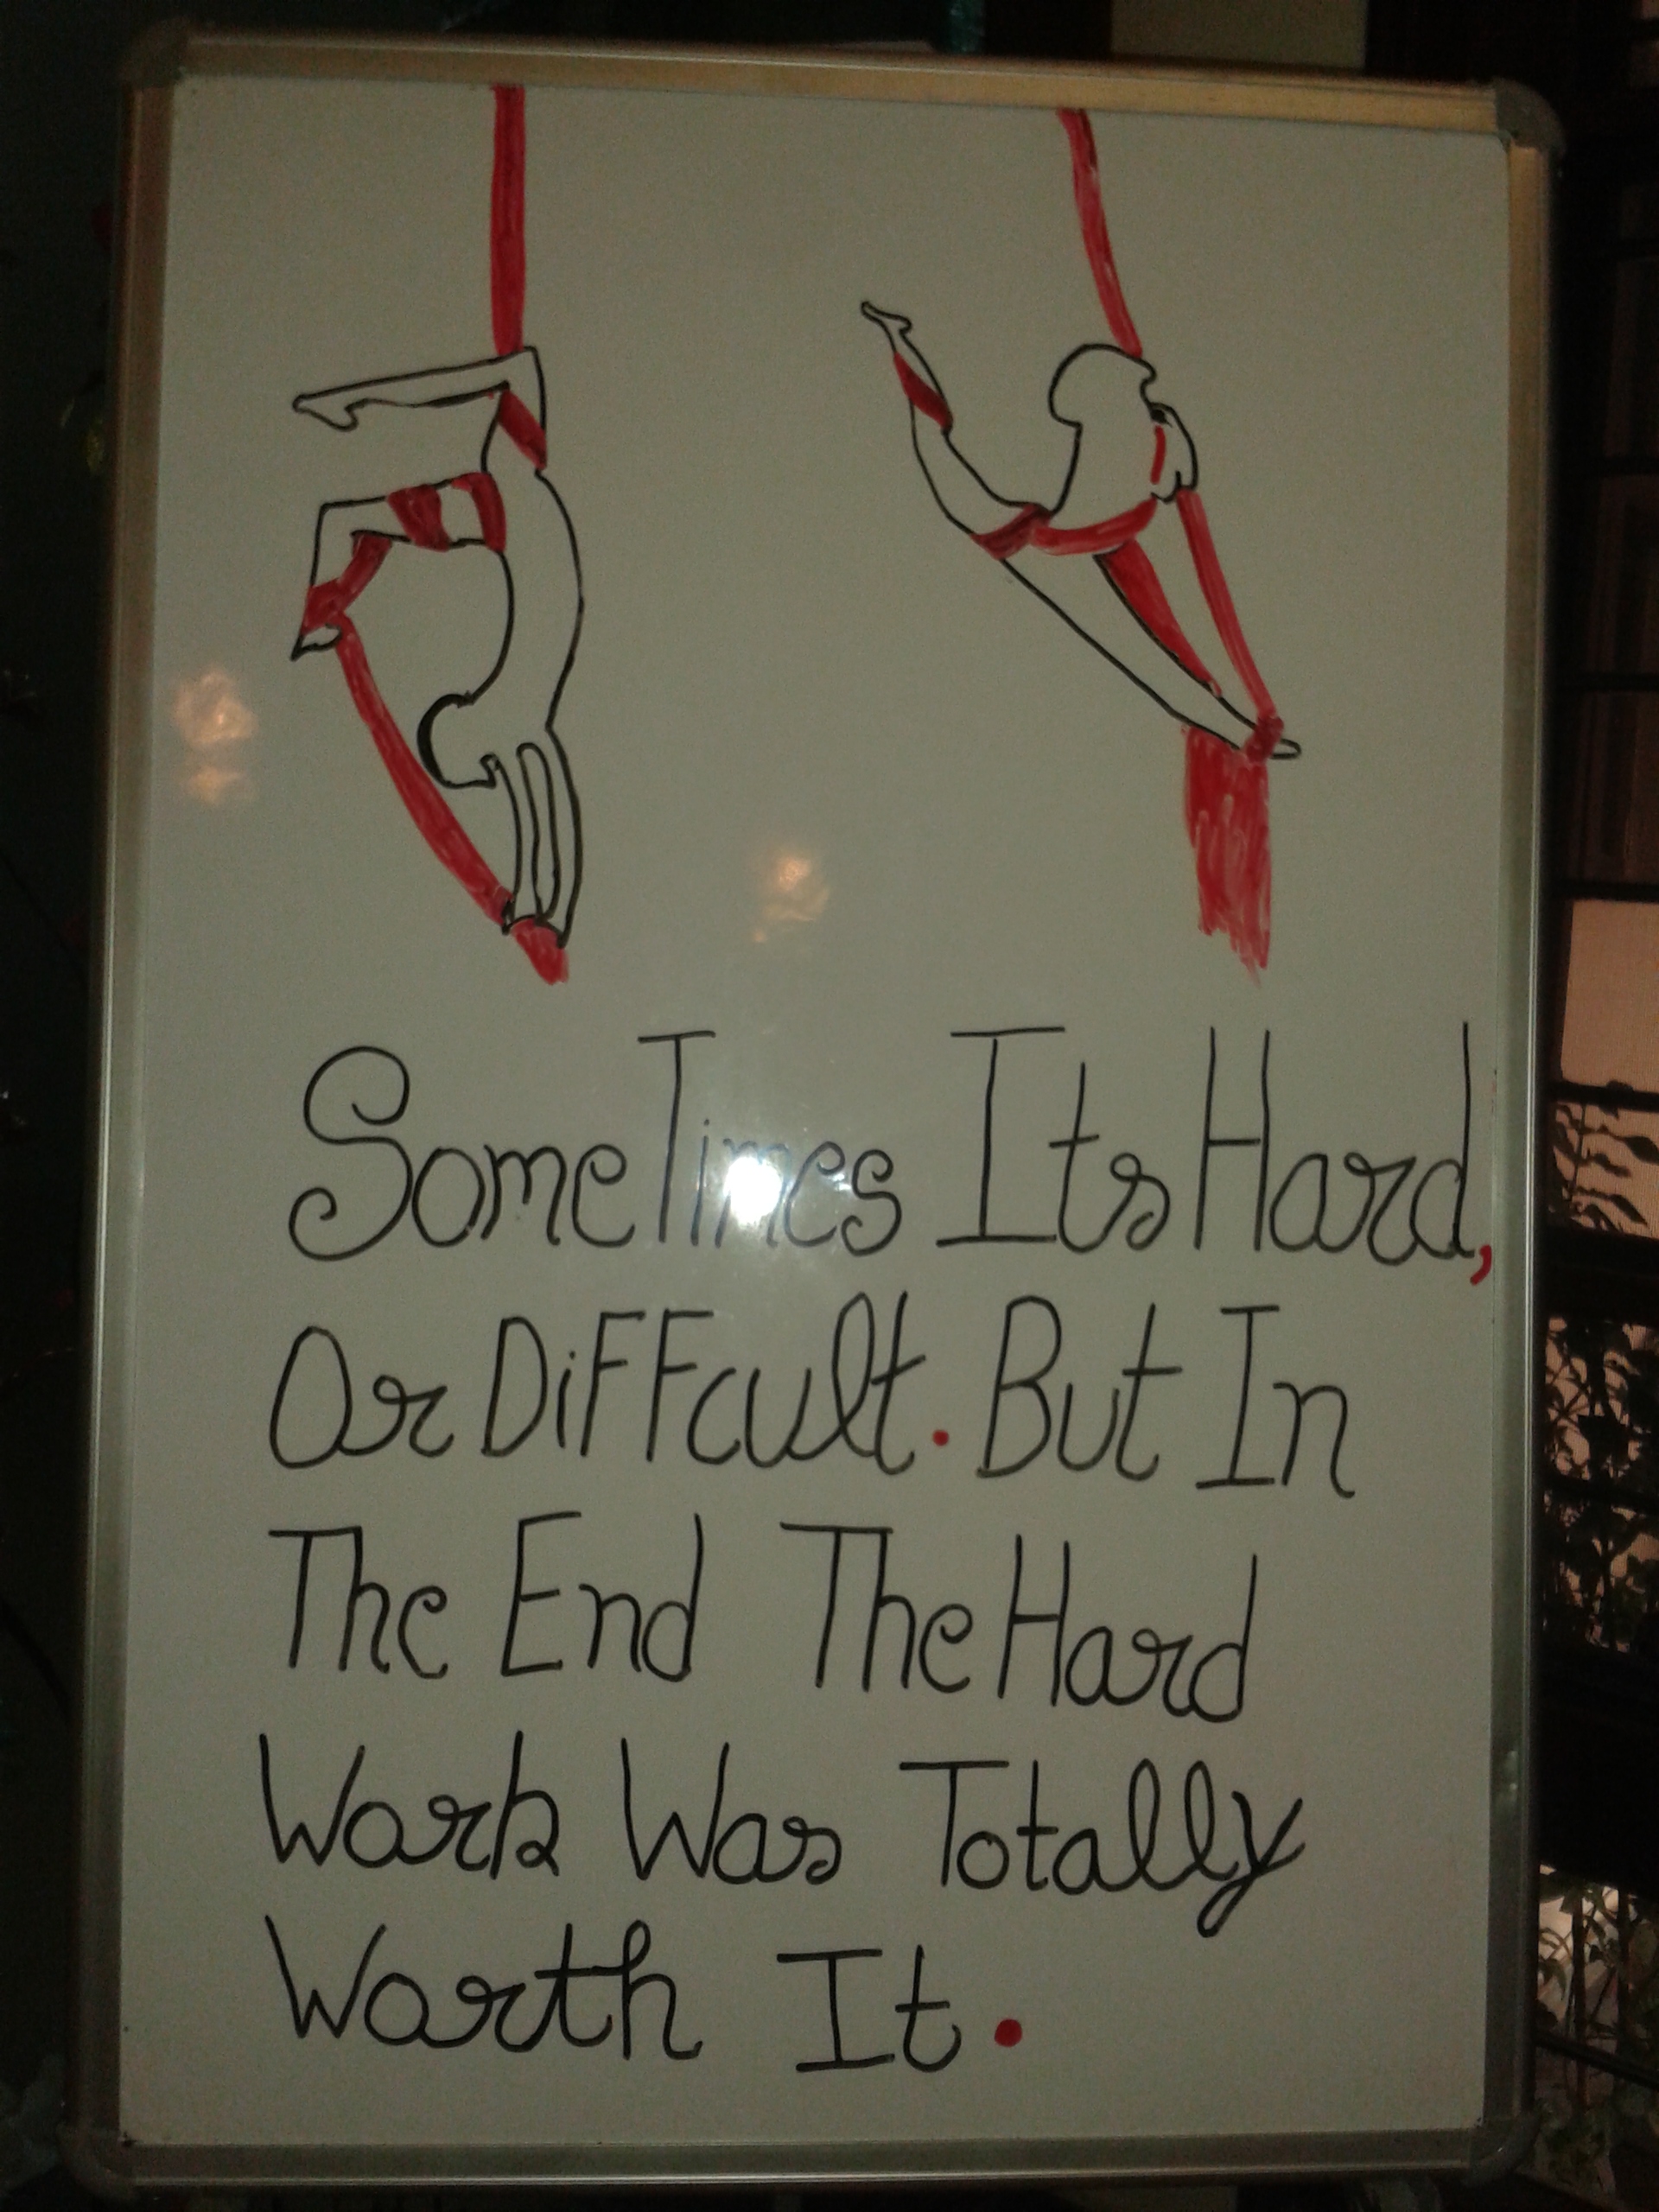 SomeTimes Its Hard,
Or DiFFcult. But In
The End The Hard
Work Was Totally
Worth It.